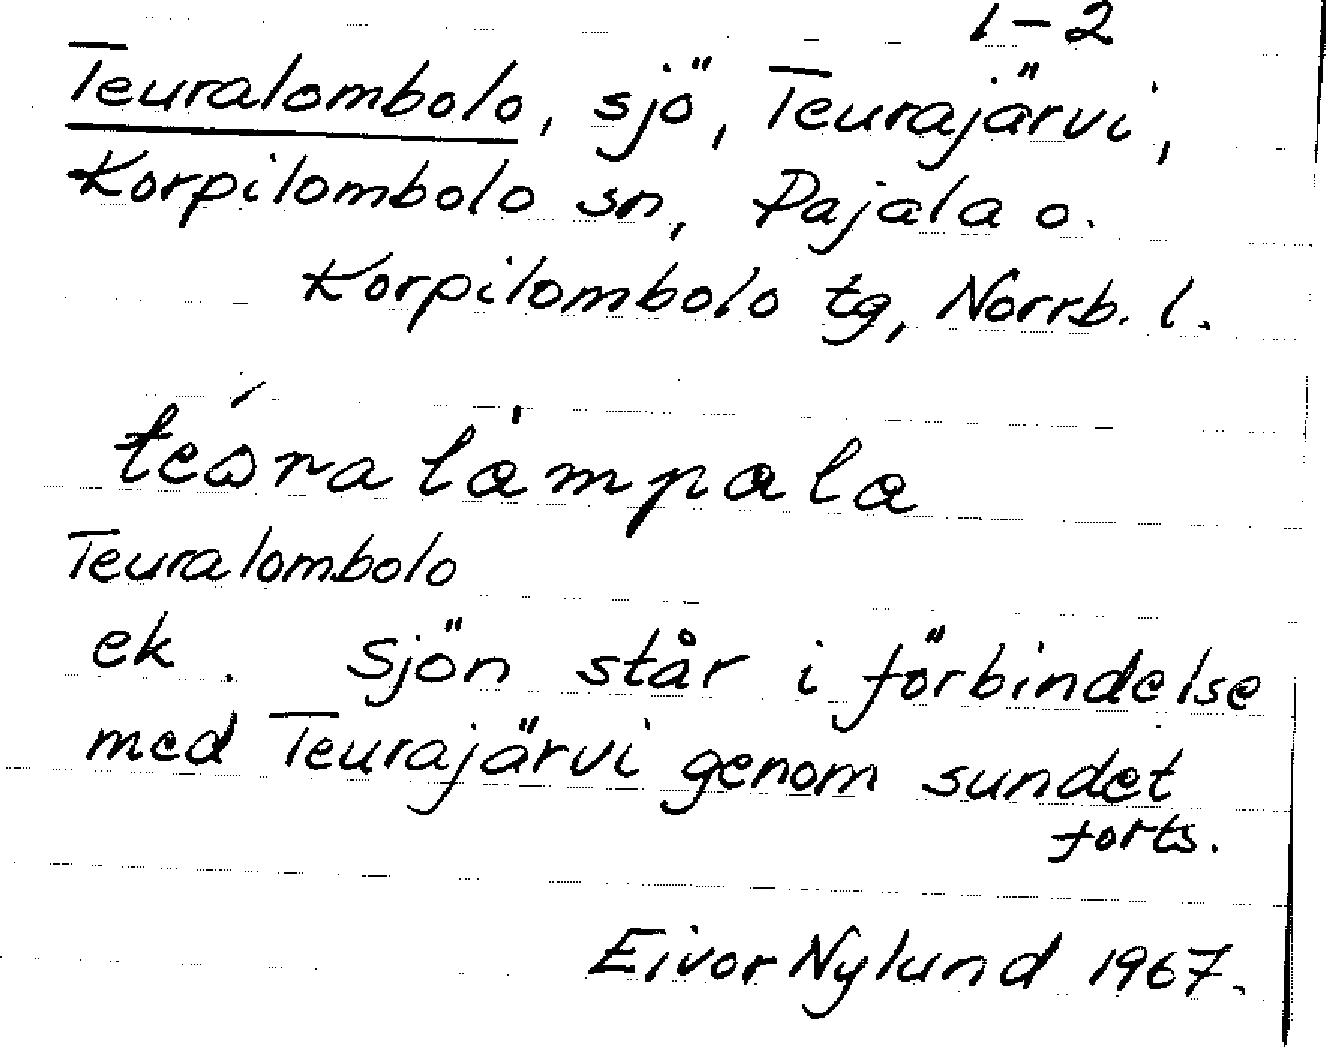 1-2
Teuralombolo, sjö, Teurajärvi,
Korpilombolo sn, Pajala o.
Korpilombolo tg, Norrb. l.
Teuralombolo
ek. Sjön står i förbindelse
med Teurajärvi genom sundet
forts.
Eivor Nylund 1967.